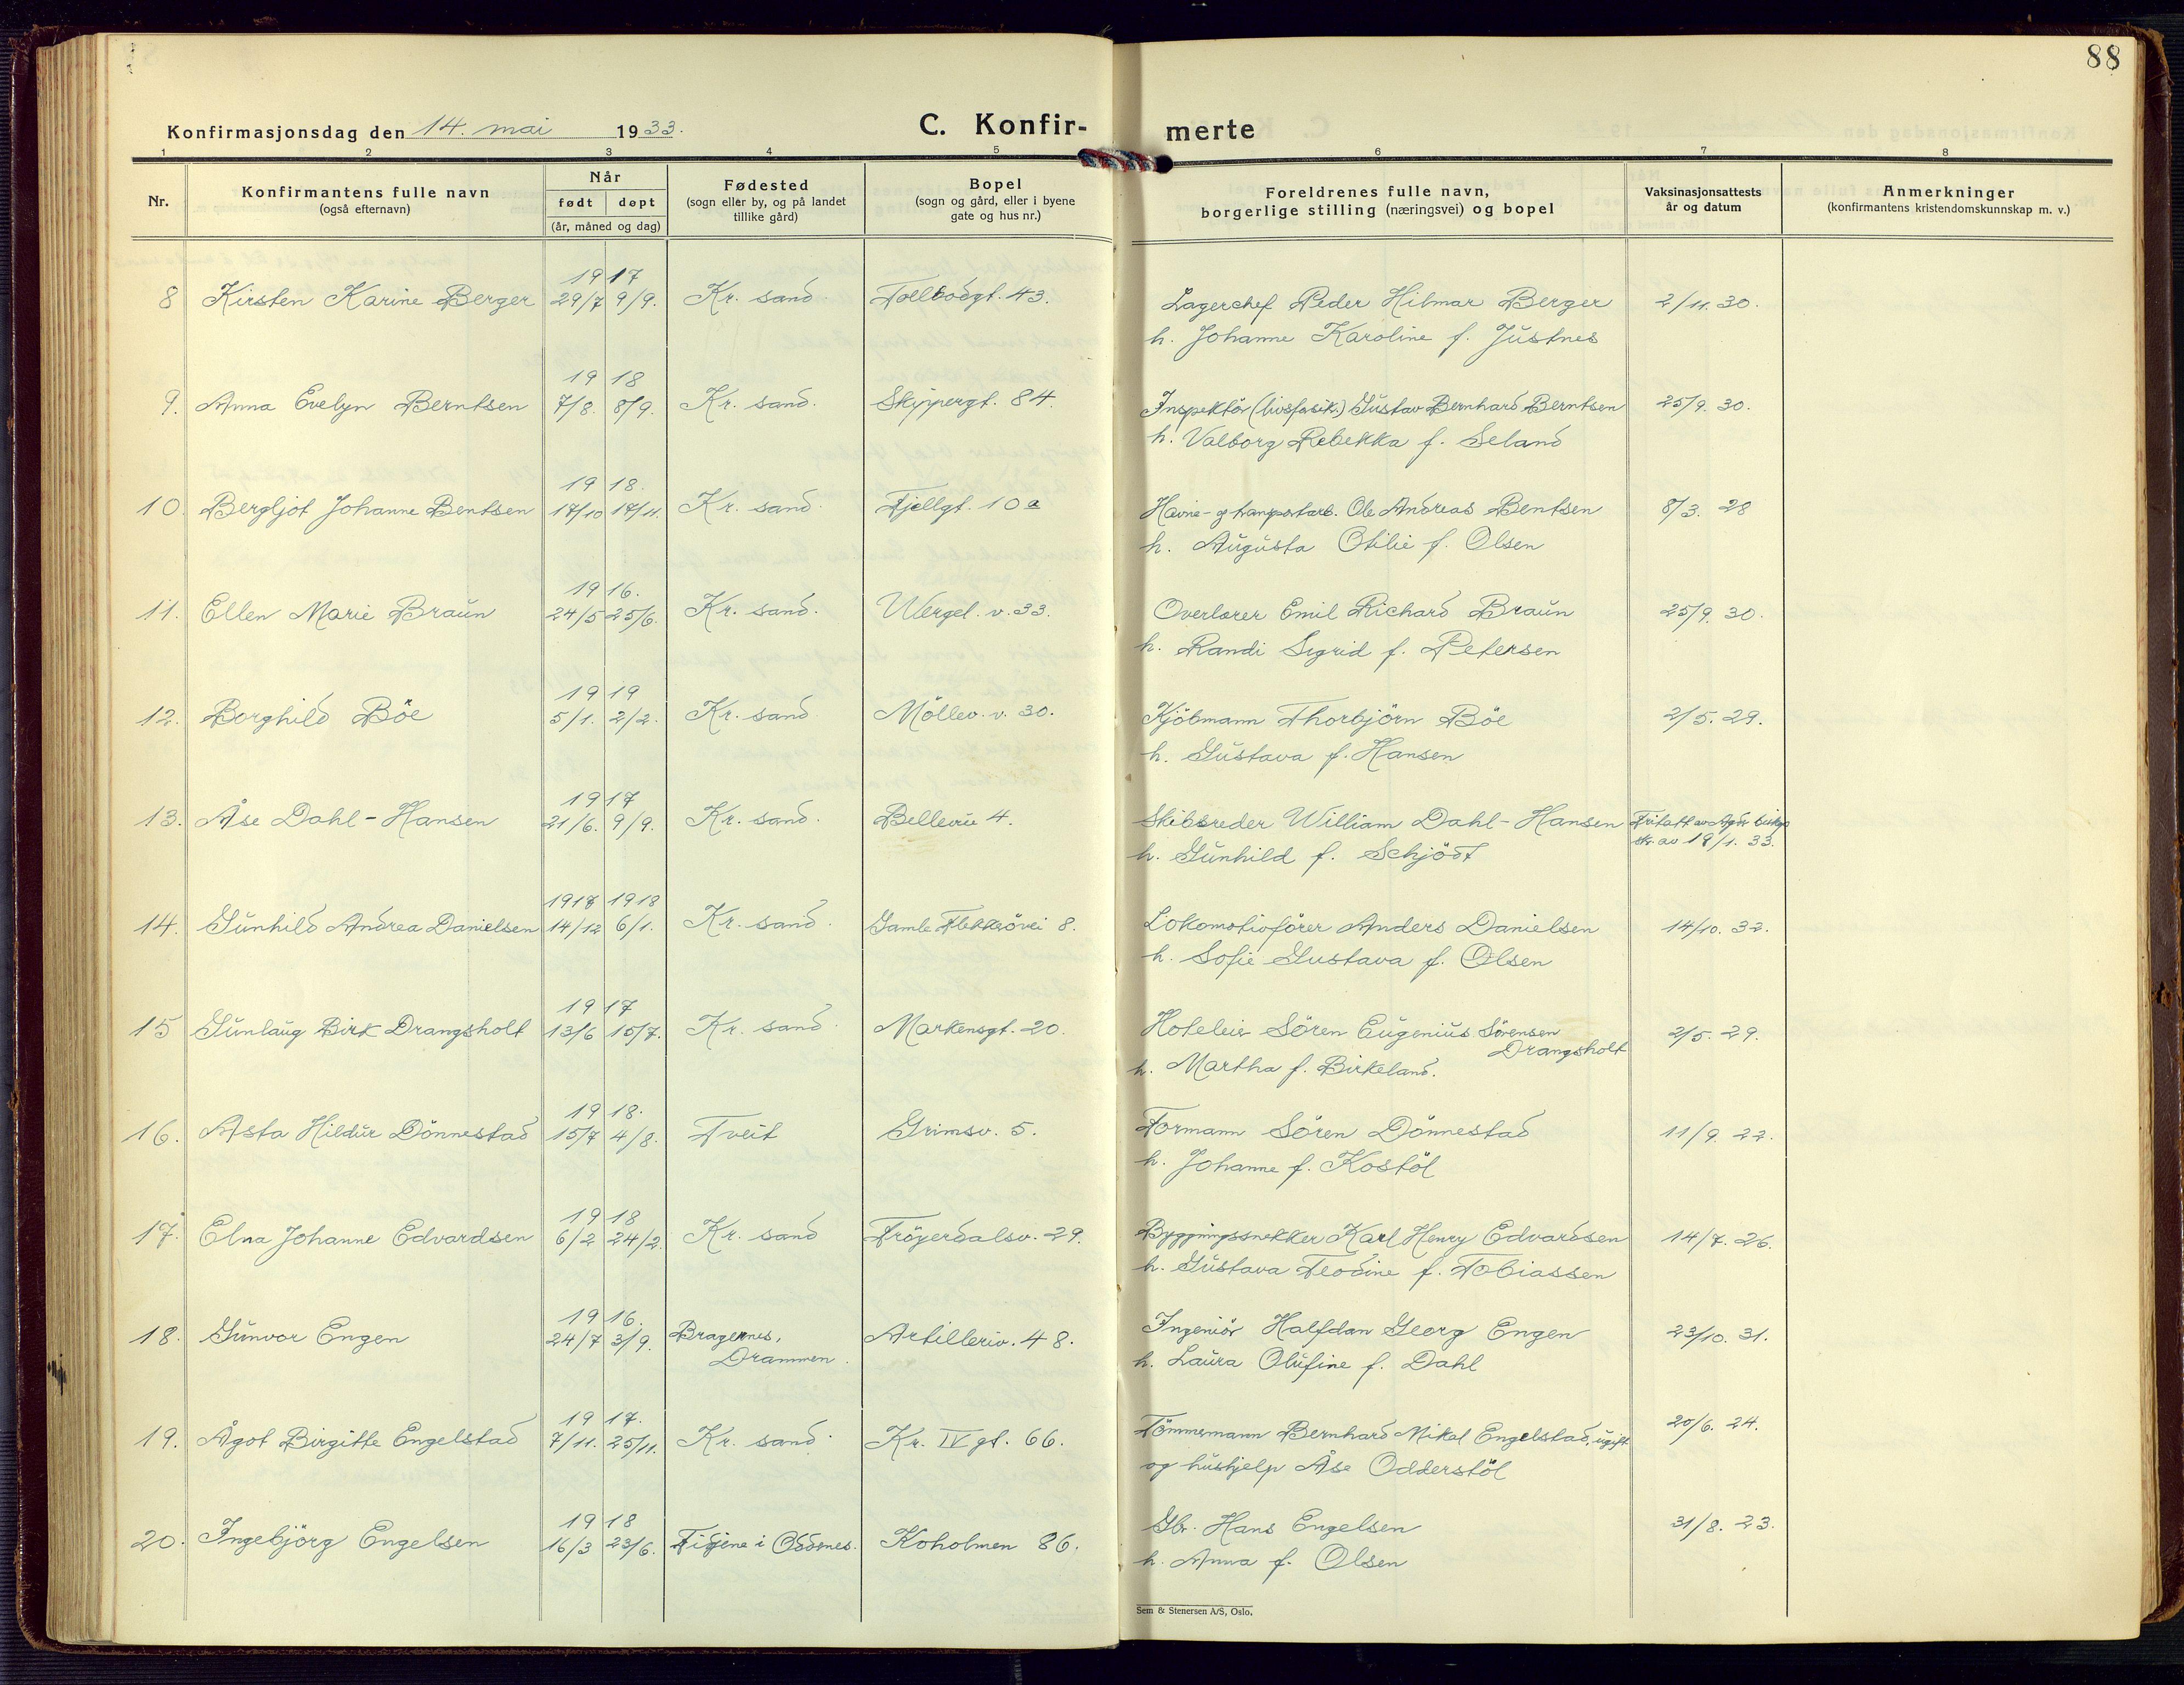 88
Konfirmasjonsdag den 14. mai 1933.
C. Konfir-
merte
1 2 3 4 5 6 7 8
Nr.
Konfirmantens fulle navn
(også efternavn)
Når
født døpt
(år, måned og dag)
Fødested
(sogn eller by, og på landet
tillike gård)
Bopel
(sogn og gård, eller i byene
gate og hus nr.)
Foreldrenes fulle navn,
borgerlige stilling (næringsvei) og bopel
Vaksinasjonsattests
år og datum
Anmerkninger
(konfirmantens kristendomskunnskap m. v.)
19 17
8 Kirsten Karine Berger 29/7 9/9. Kr. sand. Tollbodgt. 43. Lagerchef Peder Hilmar Berger 2/11. 30.
h. Johanne Karoline f. Justnes
19 18
9. Anna Evelyn Berntsen 7/8. 8/9. Kr. sand. Skippergt. 84. Inspektör (livsforsik.) Gustav Bernhard Berntsen 25/9. 30.
h. Valborg Rebekka f. Seland
19 18.
10. Bergljot Johanne Bentsen 17/10 17/11. Kr. sand. Fjellgt. 10a Havne- og transportarb. Ole Andreas Bentsen 8/3. 28
h. Augusta Otilie f. Olsen
19 16.
11. Ellen Marie Braun 24/5 25/6. Kr. sand. Wergel. v. 33. Overlærer Emil Richard Braun 25/9. 30.
h. Randi Sigrid f. Petersen
19 19
12. Borghild Böe 5/1. 2/2. Kr. sand Möllev. v. 30. Kjöbmann Thorbjörn Böe 2/5. 29.
h. Gustava f. Hansen
19 17
13. Åse Dahl-Hansen 21/6. 9/9. Kr. sand. Bellevue 4. Skibsreder William Dahl-Hansen Fritatt av Agder
h. Gunhild f. Schjödt skr. av 19/1. 33.
1917 1918
14. Gunhild Andrea Danielsen 14/12 6/1. Kr. sand. Gamle Flekkerövei 8. Lokomotivförer Anders Danielsen 14/10. 32.
h. Sofie Gustava f. Olsen
19 17
15 Gunlaug Birk Drangsholt 13/6 15/7. Kr. sand. Markensgt. 20. Hoteleier Sören Eugenius Sörensen 2/5. 29.
Drangsholt
h. Martha f. Birkeland.
19 18.
16. Asta Hildur Dönnestad 15/7 4/8. Tveit Grimsv. 5. Formann Sören Dönnestad 11/9. 22.
h. Johanne f. Kostöl
19 18
17. Elna Johanne Edvardsen 6/2 24/2. Kr. sand Fröyerdalsv. 29. Bygningssnekker Karl Henry Edvardsen 14/7. 26.
h. Gustava Teodine f. Tobiassen
19 16.
18. Gunvor Engen 24/7 3/9. Bragernes, Artilleriv. 48. Ingeniör Halfdan Georg Engen 23/10. 31.
Drammen. h. Laura Olufine f. Dahl
19 17.
19. Ågot Birgitte Engelstad 7/11. 25/11. Kr. sand. Kr. IV gt. 66. Tömmermann Bernhard Mikal Engelstad, ugift 20/6. 24.
og hushjelp Åse Odderstöl
19 18
20. Ingebjörg Engelsen 16/3 23/6. Fidjene i Oddernes. Koholmen 86. Gbr. Hans Engelsen 31/8. 23.
h. Anna f. Olsen
Sem & Stenersen A/S, Oslo.